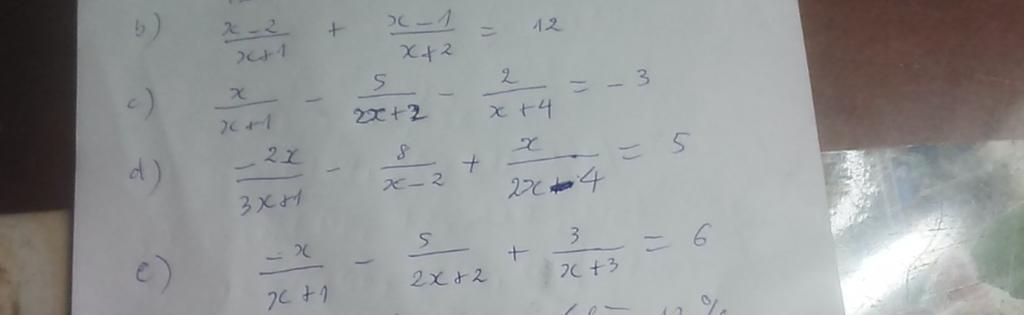 b) \frac{x-2}{x+1} + \frac{x-1}{x+2} = 12
c) \frac{x}{x+1} - \frac{5}{2x+2} - \frac{2}{x+4} = -3
d) \frac{-2x}{3x+1} - \frac{8}{x-2} + \frac{x}{2x-4} = 5
e) \frac{-x}{x+1} - \frac{5}{2x+2} + \frac{3}{x+3} = 6